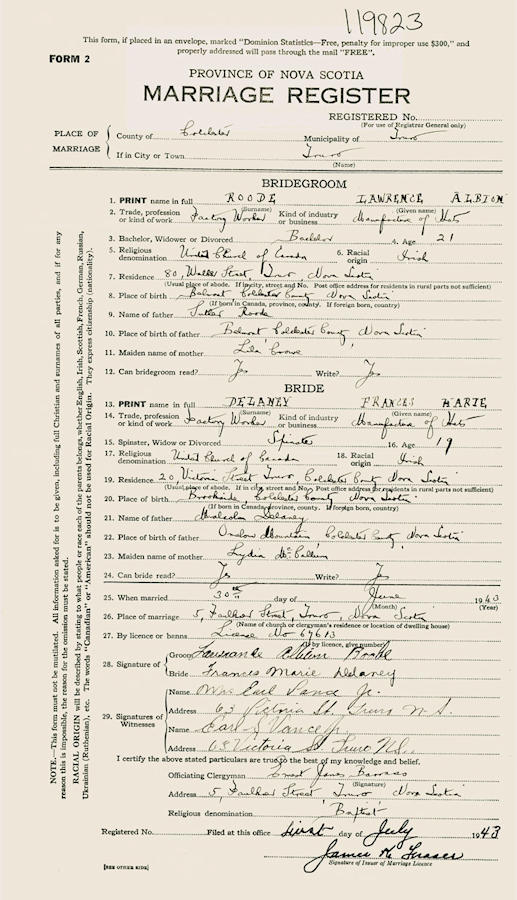 119823
This form, if placed in an envelope, marked "Dominion Statistics—Free, penalty for improper use $300," and
properly addressed will pass through the mail "FREE".
FORM 2
PROVINCE OF NOVA SCOTIA
MARRIAGE REGISTER
REGISTERED No.
(For use of Registrar General only)
PLACE OF MARRIAGE
County of Colchester Municipality of Truro
If in City or Town Truro
(Name)
BRIDEGROOM
1. PRINT name in full ROODE LAWRENCE ALBION
(Surname) (Given name)
2. Trade, profession or kind of work Factory Worker Kind of industry or business Manufacture of Hats
3. Bachelor, Widower or Divorced Bachelor 4. Age 21
5. Religious denomination United Church of Canada 6. Racial origin Irish
7. Residence 80, Walker Street, Truro, Nova Scotia
(Usual place of abode. If in city, street and No. Post office address for residents in rural parts not sufficient)
8. Place of birth Belmont Colchester County Nova Scotia
(If born in Canada, province, county. If foreign born, country)
9. Name of father Roode
10. Place of birth of father Belmont Colchester County Nova Scotia
11. Maiden name of mother Lila Crowe
12. Can bridegroom read? Yes Write? Yes
BRIDE
13. PRINT name in full DELANEY FRANCES MARIE
(Surname) (Given name)
14. Trade, profession or kind of work Factory Worker Kind of industry or business Manufacture of Hats
15. Spinster, Widow or Divorced Spinster 16. Age 19
17. Religious denomination United Church of Canada 18. Racial origin Irish
19. Residence 20 Victoria Street Truro, Colchester County Nova Scotia
(Usual place of abode. If in city, street and No. Post office address for residents in rural parts not sufficient)
20. Place of birth Brookside, Colchester County Nova Scotia
(If born in Canada, province, county. If foreign born, country)
21. Name of father Malcolm Delaney
22. Place of birth of father Onslow Mountain, Colchester County Nova Scotia
23. Maiden name of mother Lydia McCallum
24. Can bride read? Yes Write? Yes
25. When married 30th day of June 1943
(Month) (Year)
26. Place of marriage 5, Faulkner Street, Truro, Nova Scotia
(Name of church or clergyman's residence or location of dwelling house)
27. By licence or banns License No 67613
(If by licence, give number)
28. Signature of
Groom Lawrence Albion Roode
Bride Frances Marie Delaney
29. Signatures of Witnesses
Name Mrs Earl Vance Jr.
Address 63 Victoria St. Truro N.S.
Name Earl J Vance Jr.
Address 63 Victoria St Truro N.S.
I certify the above stated particulars are true to the best of my knowledge and belief.
Officiating Clergyman Ernest James Barrass
(Signature)
Address 5, Faulkner Street Truro Nova Scotia
Religious denomination Baptist
Registered No. Filed at this office first day of July 1943
James K Fraser
Signature of Issuer of Marriage Licence
[SEE OTHER SIDE]
NOTE.—This form must not be mutilated. All information asked for is to be given, including full Christian and surnames of all parties, and if for any
reason this is impossible, the reason for the omission must be stated.
RACIAL ORIGIN will be described by stating to what people or race each of the parents belongs, whether English, Irish, Scottish, French, German, Russian,
Ukrainian (Ruthenian), etc. The words "Canadian" or "American" should not be used for Racial Origin. They express citizenship (nationality).